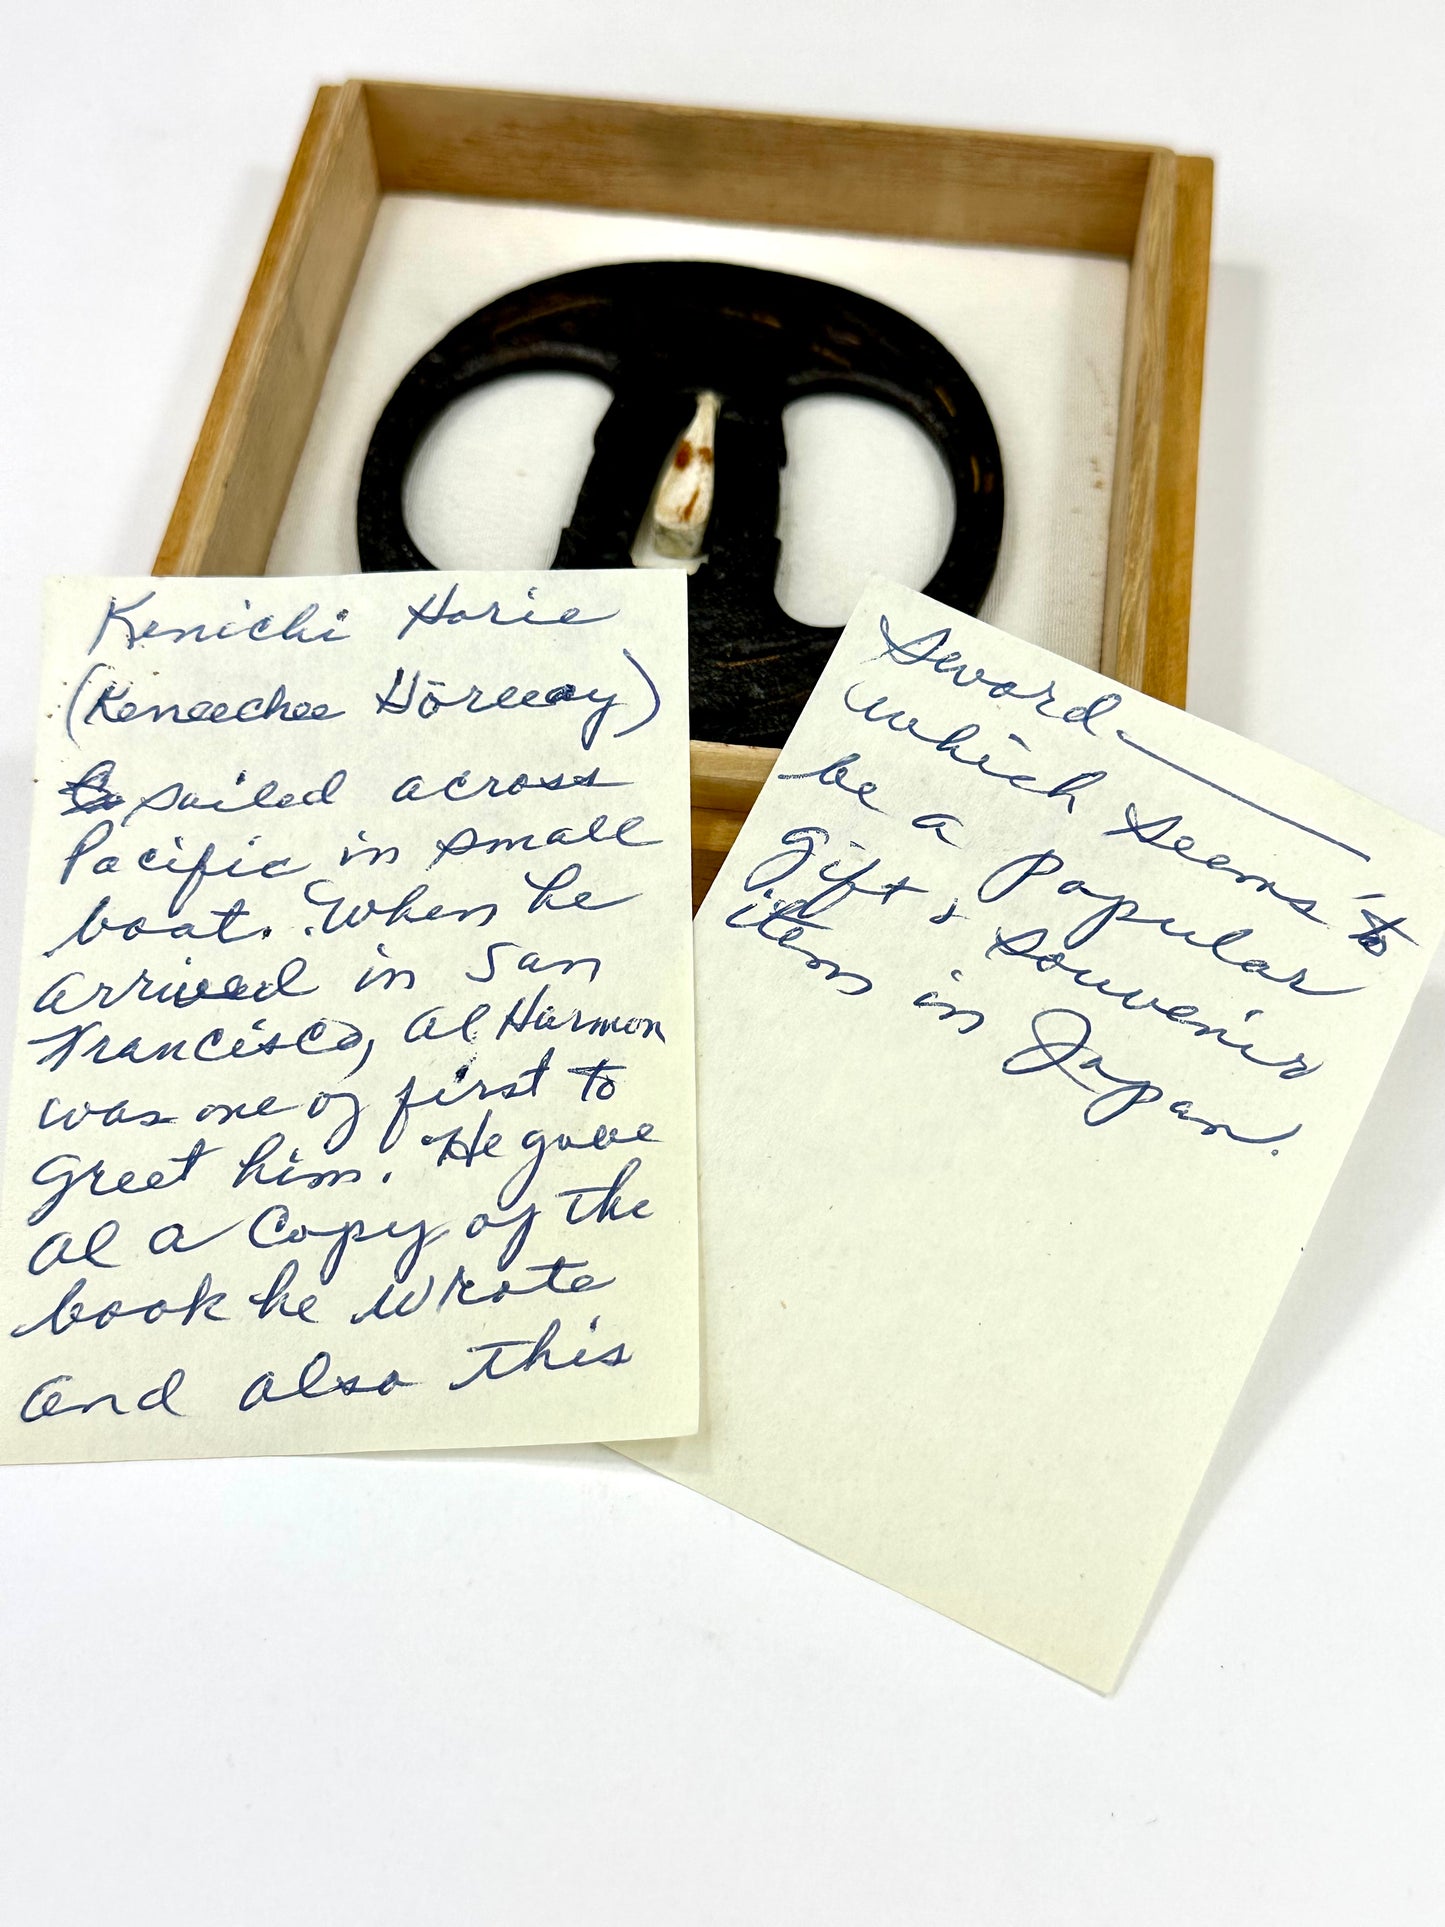 Kenichi Horie
(Keneechee Hōreeay)
sailed across
Pacific in small
boat. When he
arrived in San
Francisco, Al Harmon
was one of first to
greet him. He gave
Al a copy of the
book he wrote
and also this
Sword —
which seems to
be a popular
gift & souvenir
item in Japan.